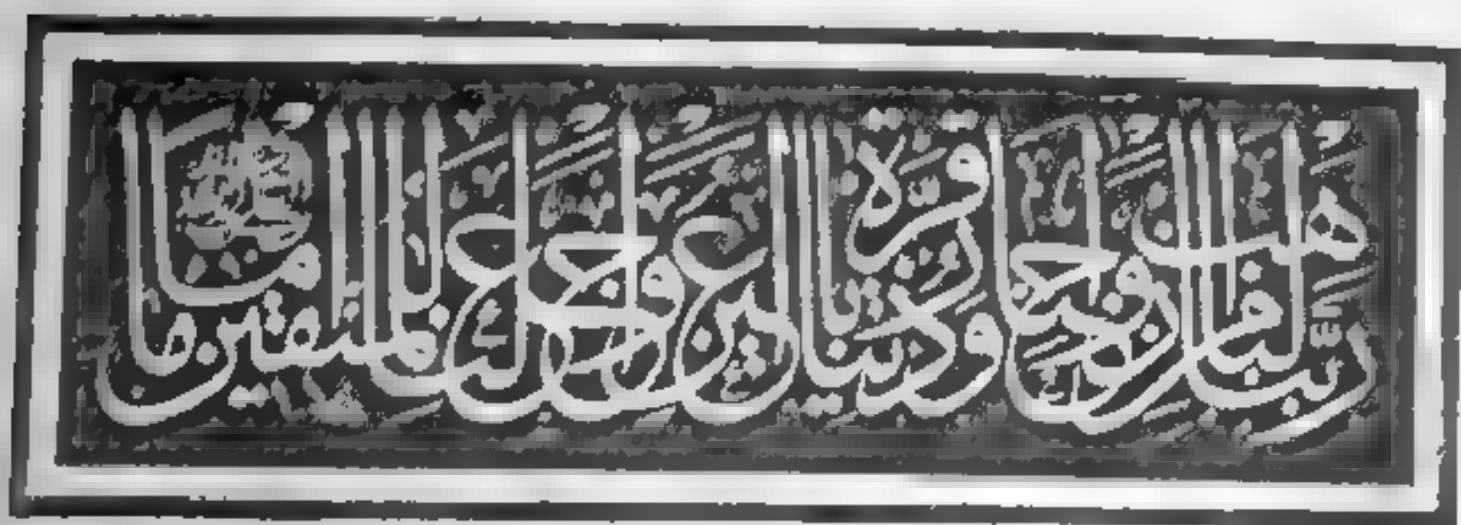 ربنا هب لنا من أزواجنا وذرياتنا قرة أعين واجعلنا للمتقين إماما